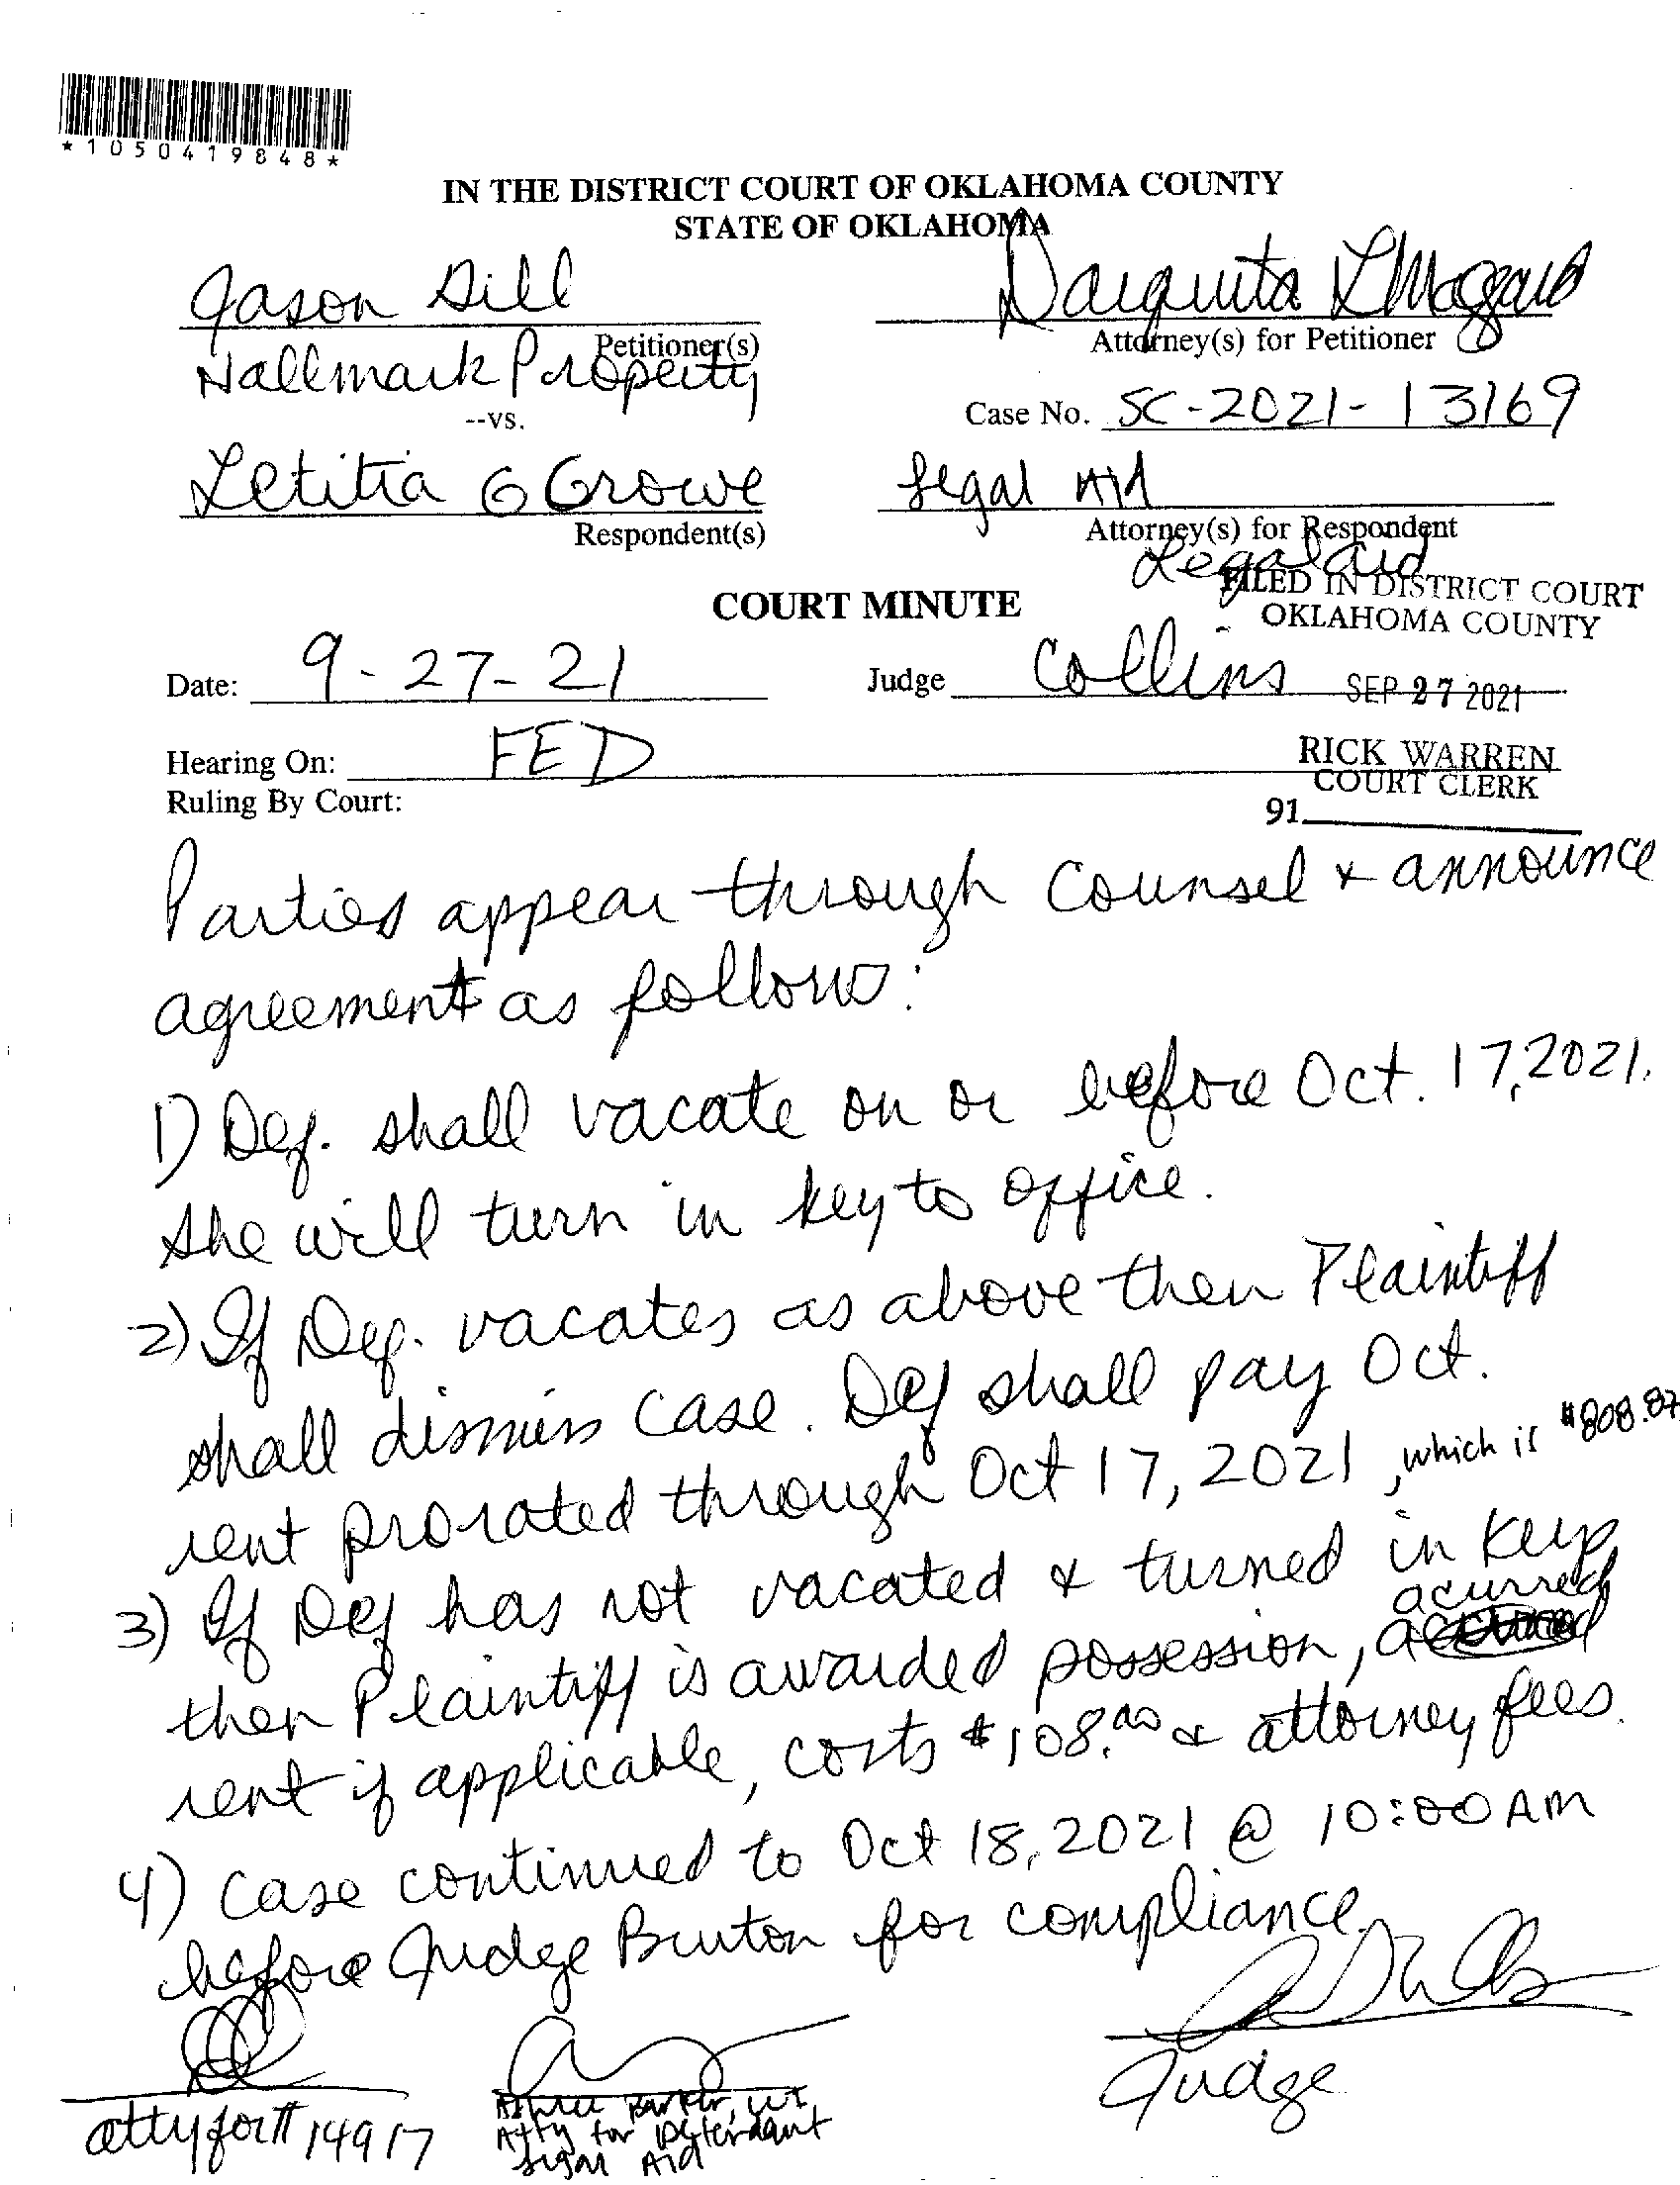 *1050419848*
IN THE DISTRICT COURT OF OKLAHOMA COUNTY
STATE OF OKLAHOMA
Jason Dill
Petitioner(s)
Hallmark Property
--vs.
Letitia G Growe
Respondent(s)
Daiquita L
Attorney(s) for Petitioner
Case No. SC-2021-13169
Legal Aid
Attorney(s) for Respondent
Legal Aid
COURT MINUTE
FILED IN DISTRICT COURT
OKLAHOMA COUNTY
Date: 9-27-21
Judge Collins
SEP 27 2021
Hearing On: FED
RICK WARREN
COURT CLERK
Ruling By Court:
91
Parties appear through counsel & announce
agreement as follows:
1) Def. shall vacate on or before Oct. 17, 2021.
She will turn in key to office.
2) If Def. vacates as above then Plaintiff
shall dismiss case. Def shall pay Oct.
rent prorated through Oct 17, 2021, which is $808.87
3) If Def has not vacated & turned in keys
acurred
then Plaintiff is awarded possession,
rent if applicable, costs $108.00 & attorney fees.
4) Case continued to Oct 18, 2021 @ 10:00 AM
before Judge Bruton for compliance.
Judge
atty for π 14917
Barker,
Atty for Defendant
Legal Aid